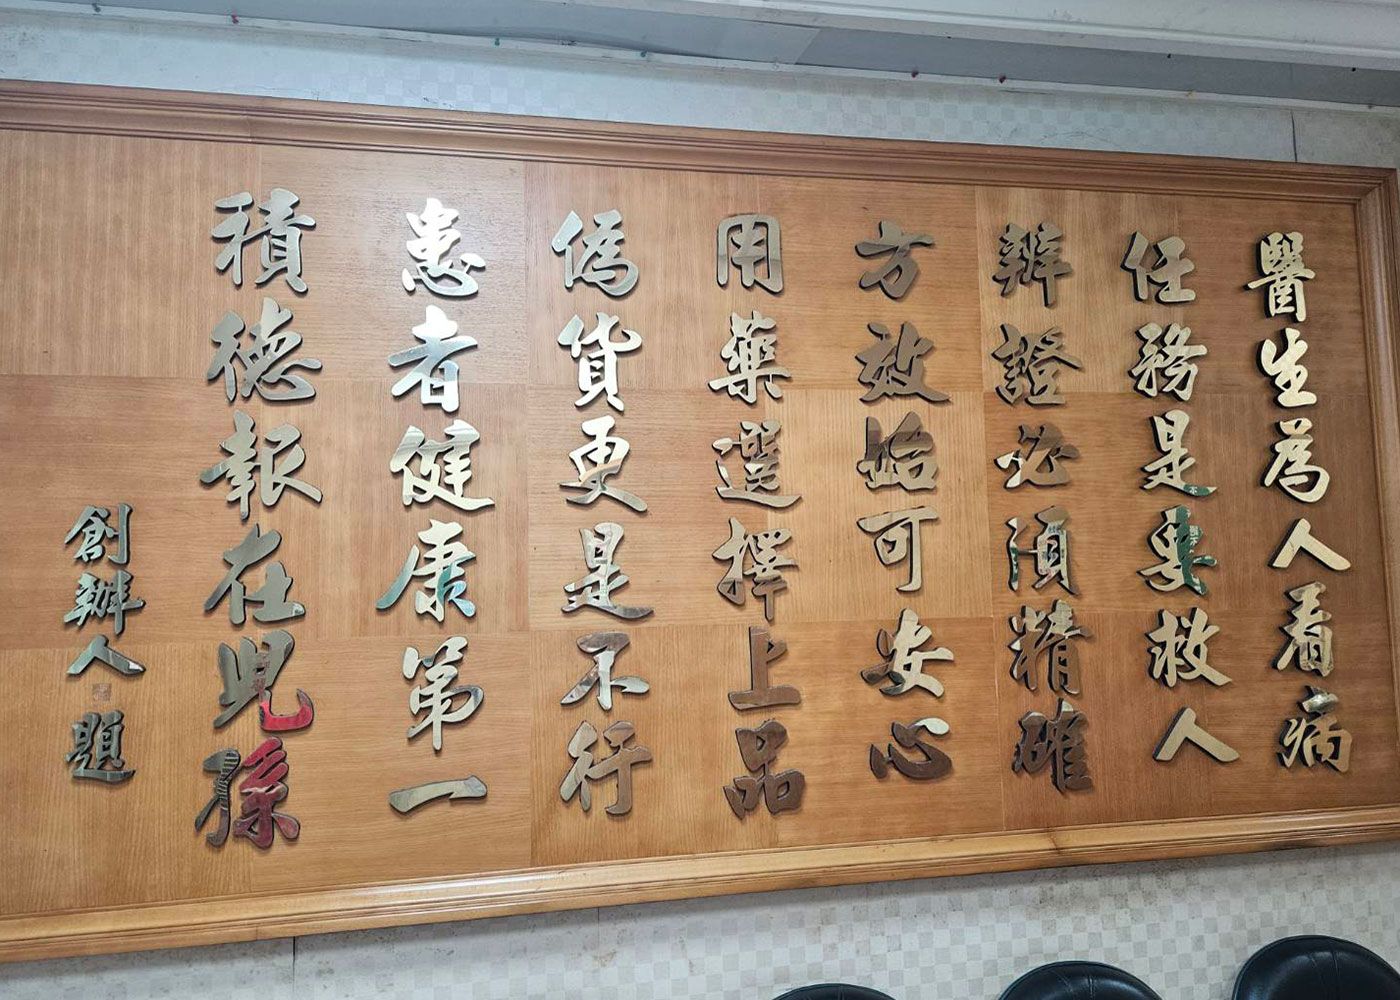 醫生為人看病
任務是要救人
辨證必須精確
方效始可安心
用藥選擇上品
偽貨更是不行
患者健康第一
積德報在兒孫
創辦人題